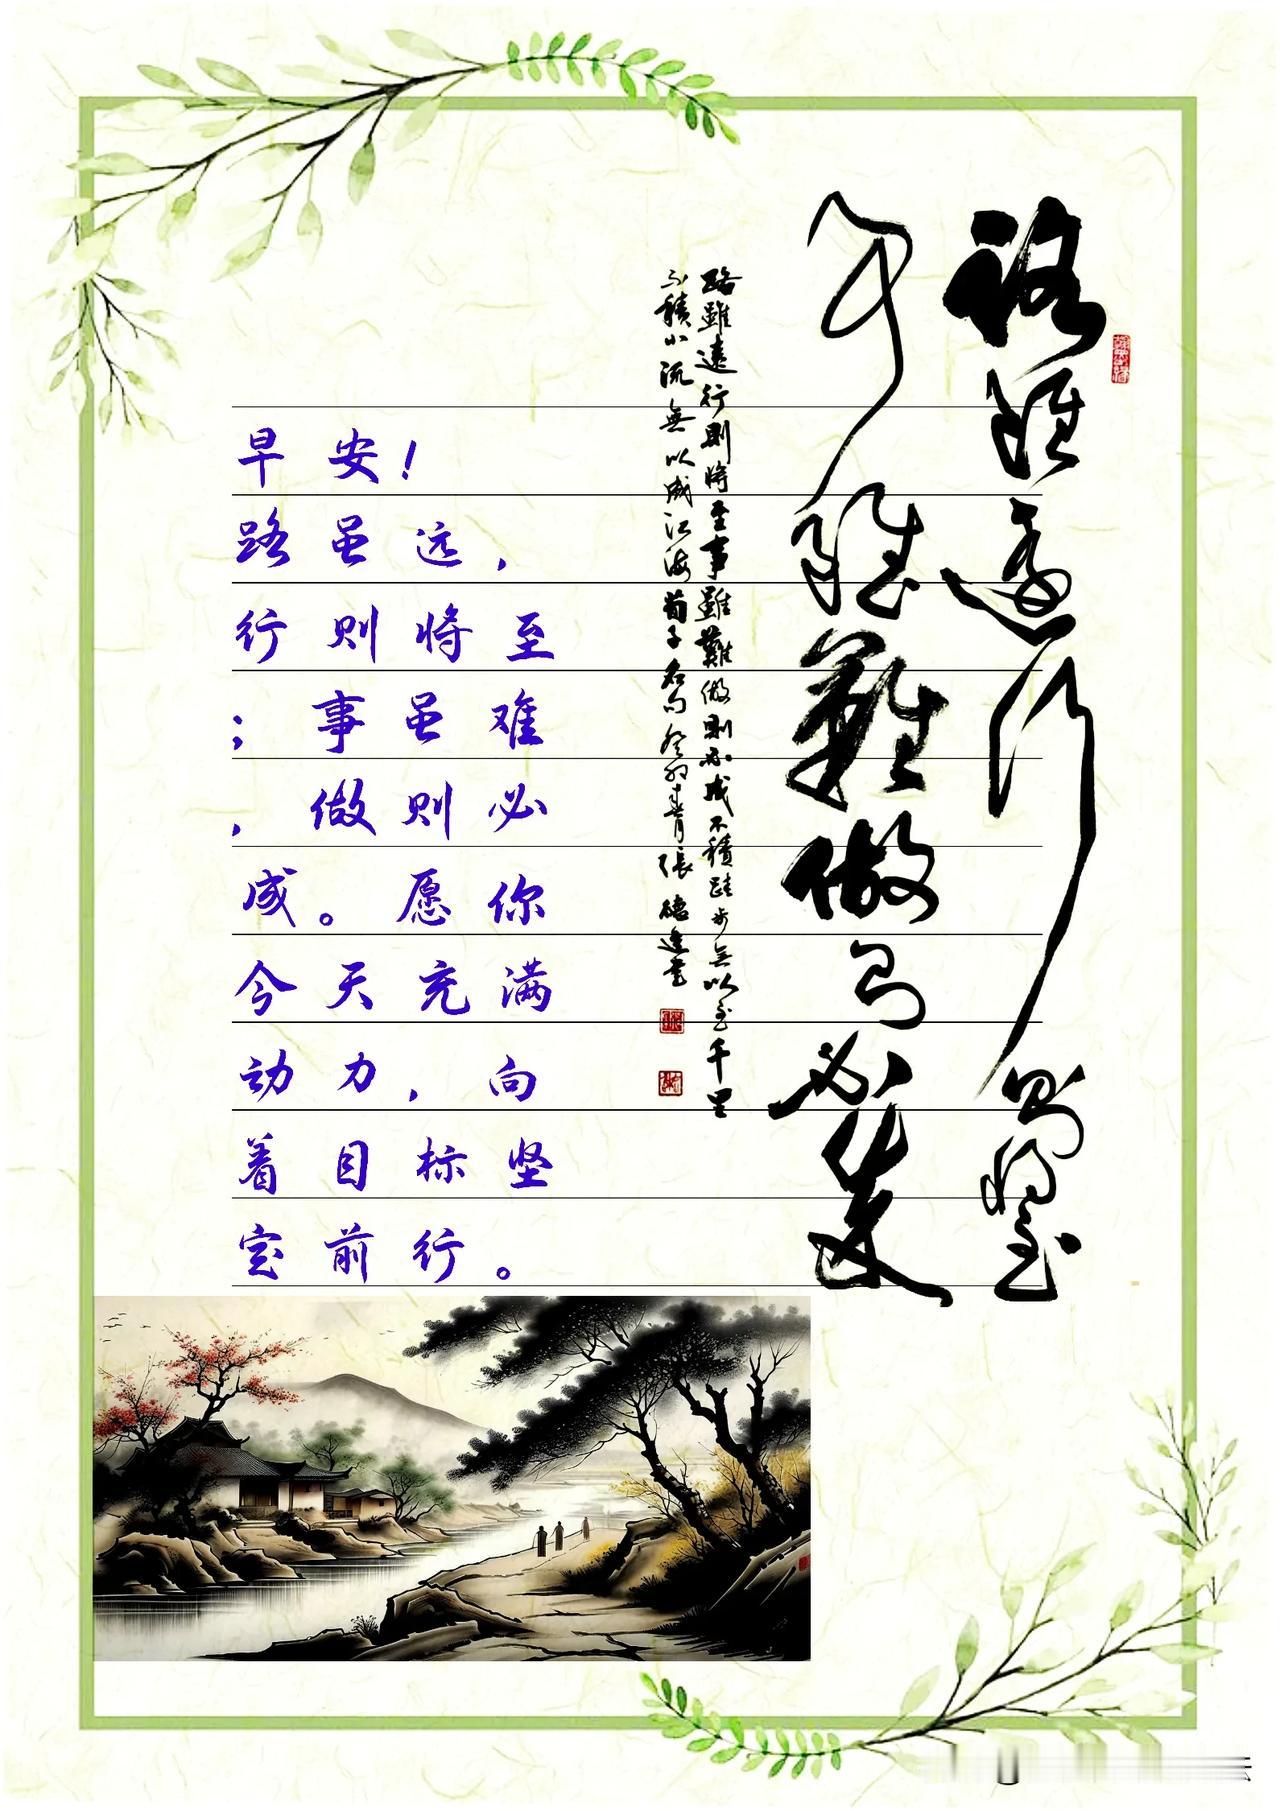 早安!
路虽远,
行则将至
;事虽难
,做则必
成。愿你
今天充满
动力,向
着目标坚
定前行。
路雖遠行則將至
事雖難做則必成
路雖遠行則將至事雖難做則必成不積跬步無以至千里
不積小流無以成江海荀子名句癸卯春月張書